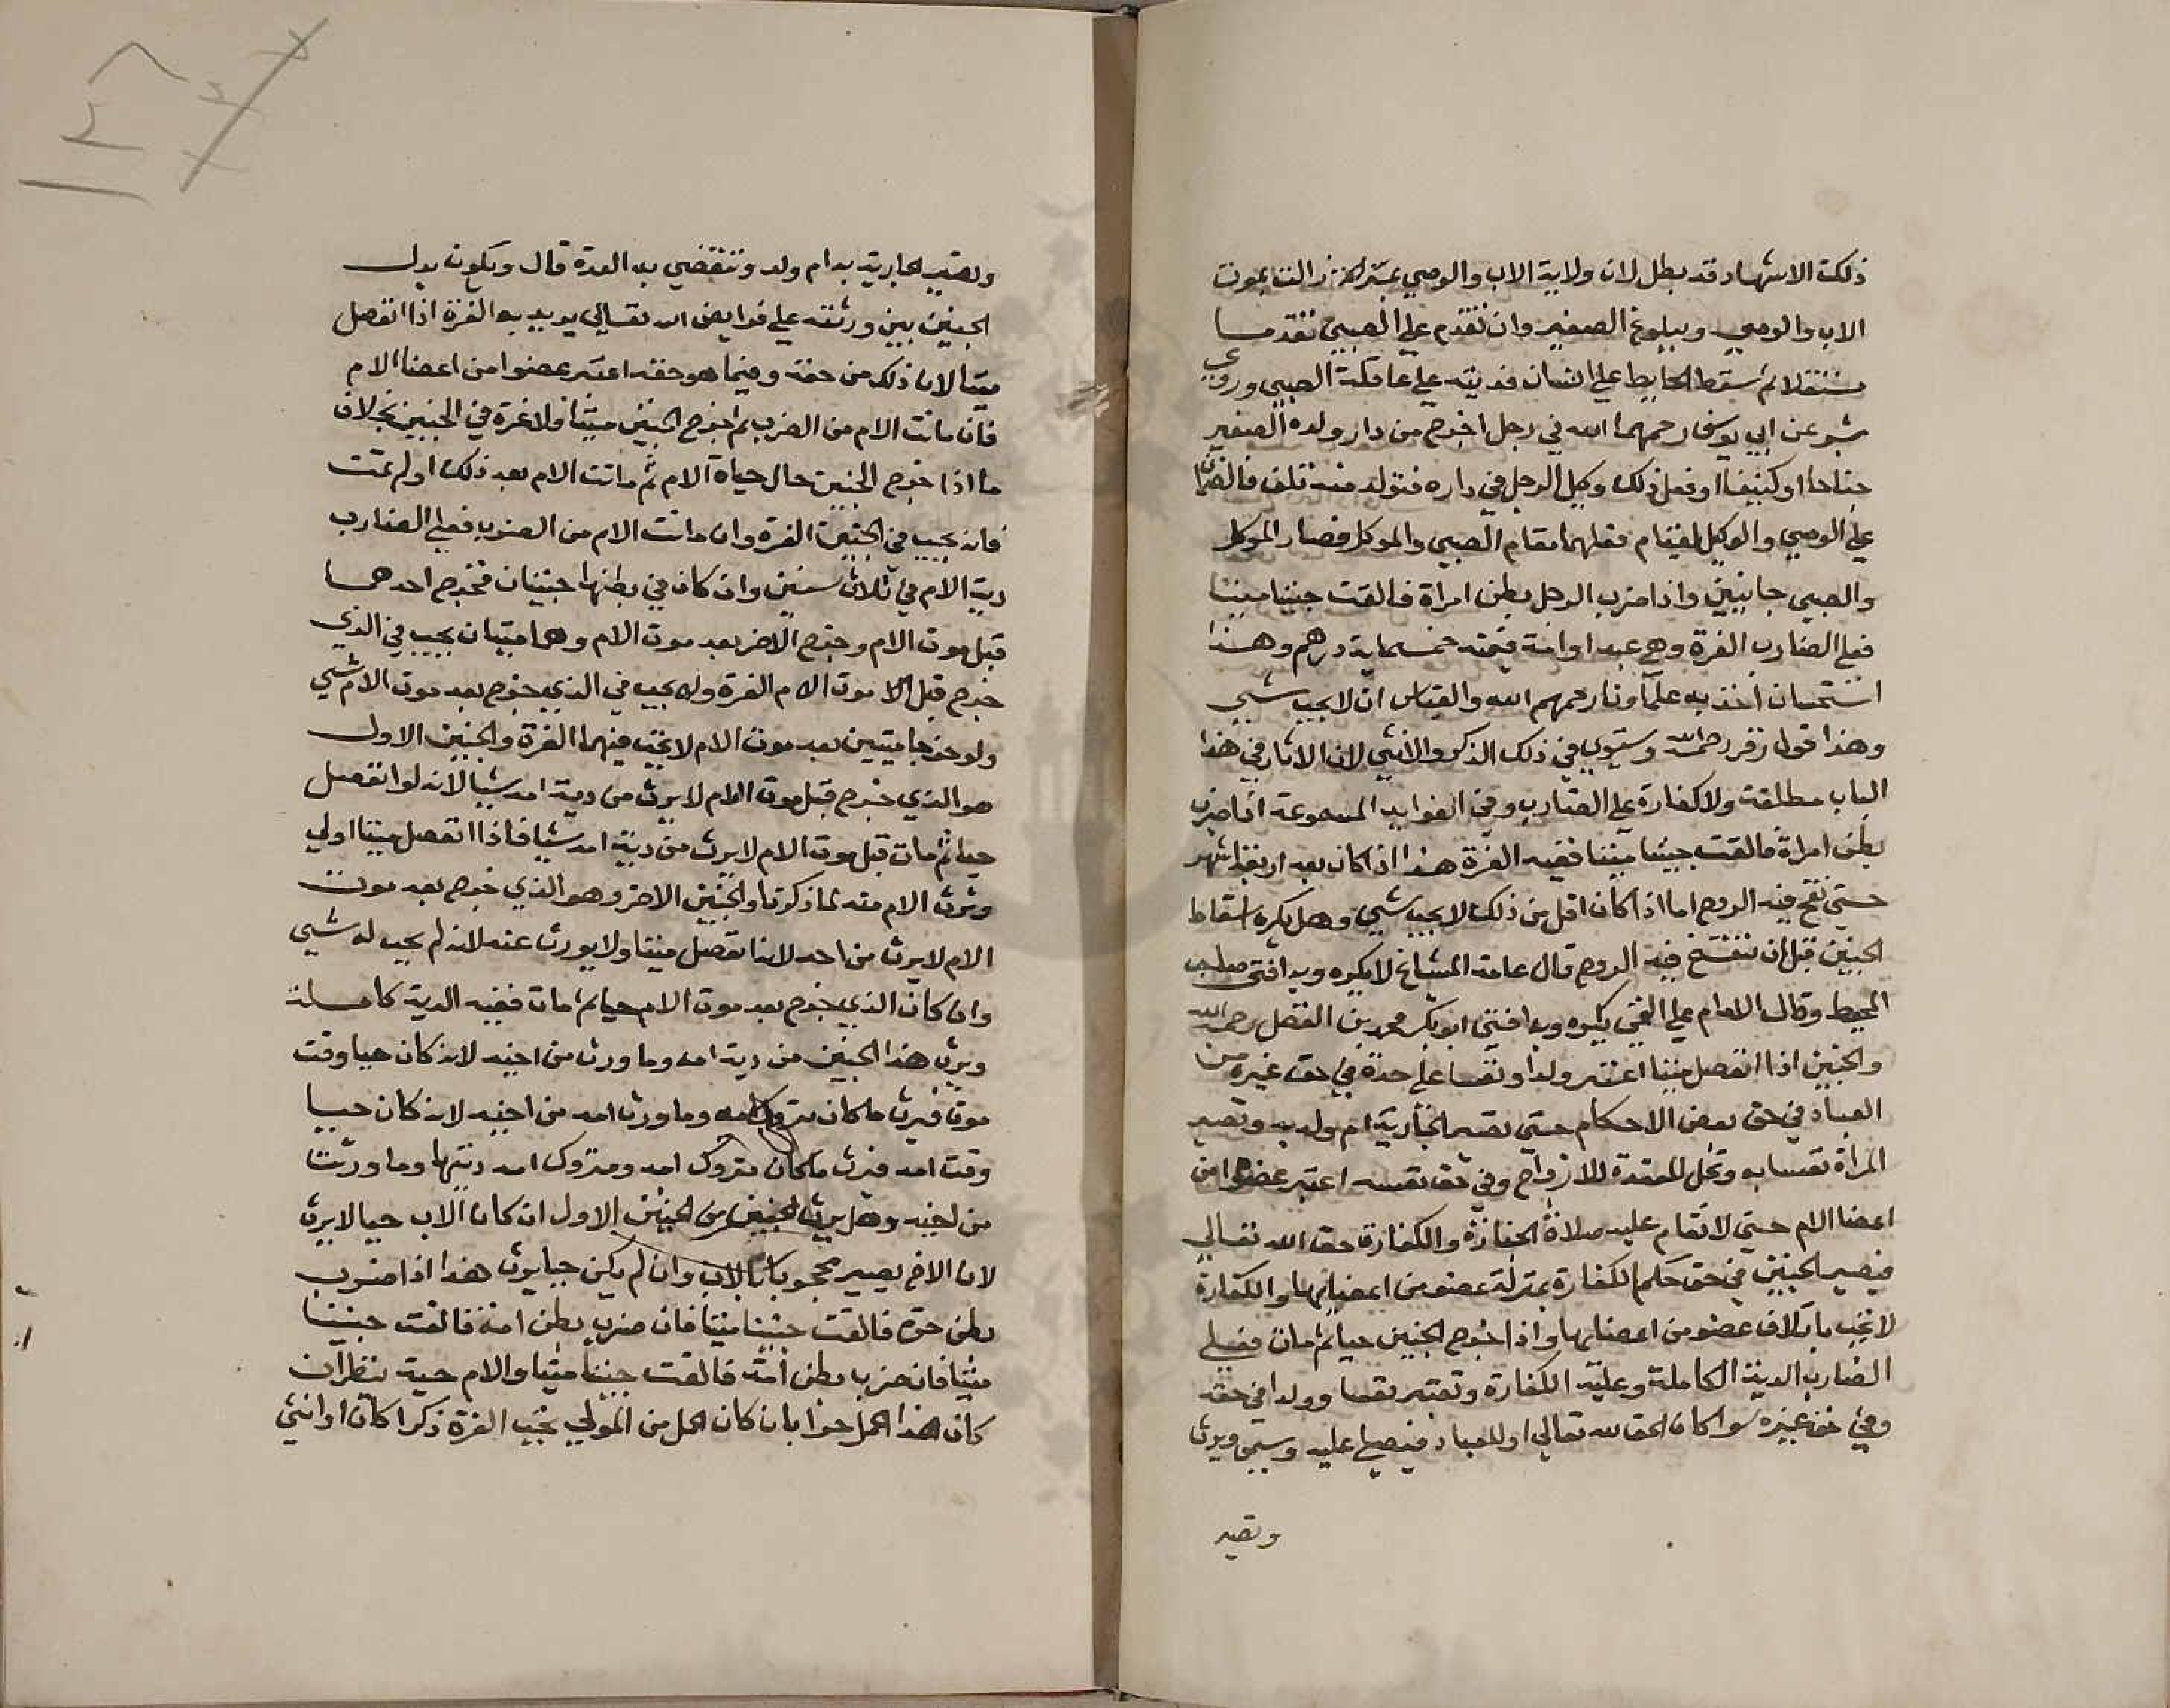 ذلك الاشهاد قد بطل لان ولاية الاب والوصي بمنزلة زالت بموت
الاب والوصي وببلوغ الصغير وان تقدم علي الصبي تقدما
مستقلا ثم سقط الحايط علي انسان فديته علي عاقلة الصبي وروي
بشر عن ابي يوسف رحمهما الله في رجل اخرج من دار ولده الصغير
جناحا او كنيفا او فعل ذلك وكيل الرجل في داره فتولد منه تلف فالضمان
علي الوصي والوكيل لقيام فعلهما مقام الصبي والموكل فصار الموكل
والصبي جانيين واذا ضرب الرجل بطن امراة فالقت جنينا ميتا
فعلي الضارب الغرة وهي عبد او امة قيمته خمسماية درهم وهذا
استحسان اخذ به علماونا رحمهم الله والقياس ان لا يجب شيي
وهذا قول زفر رحمه الله ويستوي في ذلك الذكر والانثي لان الاثار في هذا
الباب مطلقة ولا كفارة علي الضارب وفي الفوايد المسموعة اذا ضرب
بطن امراة فالقت جنينا ميتا ففيه الغرة هذا اذا كان بعد اربعة اشهر
حتي نفخ فيه الروح اما اذا كان اقل من ذلك لا يجب شيي وهل يكره اسقاط
الجنين قبل ان تنفسخ فيه الروح قال عامة المشايخ لا يكره وبه افتي صاحب
المحيط وقال الامام علي القمي يكره وبه افتي ابو بكر محمد بن الفضل رحمه الله
والجنين اذا انفصل ميتا اعتبر ولدا ونفسا علي حدة في حق غيره من
العباد في حق بعض الاحكام حتي تصير الجارية ام ولد به وتصير
المراة نفسا به وتحل المعتدة للازواج وفي حق نفسه اعتبر عضوا من
اعضا الام حتي لا تقام عليه صلاة الجنازة والكفارة حق الله تعالي
فيصير الجنين في حق حكم الكفارة بمنزلة عضو من اعضايها والكفارة
لا تجب باتلاف عضو من اعضايها واذا خرج الجنين حيا ثم مات فعلي
الضارب الدية الكاملة وعليه الكفارة وتعتبر نفسا وولدا في حقه
وفي حق غيره سوا كان الحق لله تعالي او للعباد فيصلي عليه ويسمي ويرث
وتصير
وتصير الجارية به ام ولد وتنقضي به العدة قال ويكون بدل
الجنين بين ورثته علي فرايض الله تعالي يريد به الغرة اذا انفصل
ميتا لان ذلك من حقه وفيما هو حقه اعتبر عضوا من اعضا الام
فان ماتت الام من الضرب ثم خرج الجنين ميتا فلا غرة في الجنين بخلاف
ما اذا خرج الجنين حال حياة الام ثم ماتت الام بعد ذلك او لم تمت
فانه يجب في الجنين الغرة وان ماتت الام من الضرب فعلي الضارب
دية الام في ثلاث سنين وان كان في بطنها جنينان فخرج احدهما
قبل موت الام وخرج الاخر بعد موت الام وهما ميتان يجب في الذي
خرج قبل موت الام الغرة ولا يجب في الذي خرج بعد موت الام شيي
ولو خرجا ميتين بعد موت الام لا يجب فيهما الغرة والجنين الاول
هو الذي خرج قبل موت الام لا يرث من دية امه شيا لانه لو انفصل
حيا ثم مات قبل موت الام لا يرث من دية امه شيا فاذا انفصل ميتا اولي
وترث الام منه لما ذكرنا والجنين الاخر وهو الذي خرج بعد موت
الام لا يرث من احد لانه انفصل ميتا ولا يورث عنه لانه لم يجب له شيي
وان كان الذي خرج بعد موت الام حيا ثم مات ففيه الدية كاملة
ويرث هذا الجنين من دية امه وما ورث من اخيه لانه كان حيا وقت
موت فيرث ما كان متروك امه وما ورث امه من اخيه لانه كان حيا
وقت امه فيرث ما كان متروك امه ومتروك امه ديتها وما ورثت
من اخيه وهل يرث الجنين من الجنين الاول ان كان الاب حيا لا يرث
لان الاخ يصير محجوبا بالاب وان لم يكن حيا يرث هذا اذا ضرب
بطن حرة فالقت جنينا ميتا فان ضرب بطن امة فالقت جنينا
ميتا فان ضرب بطن امة فالقت جنينا ميتا والام حية ينظر ان
كان هذا الحمل حرا بان كان الحمل من المولي يجب الغرة ذكرا كان او انثي